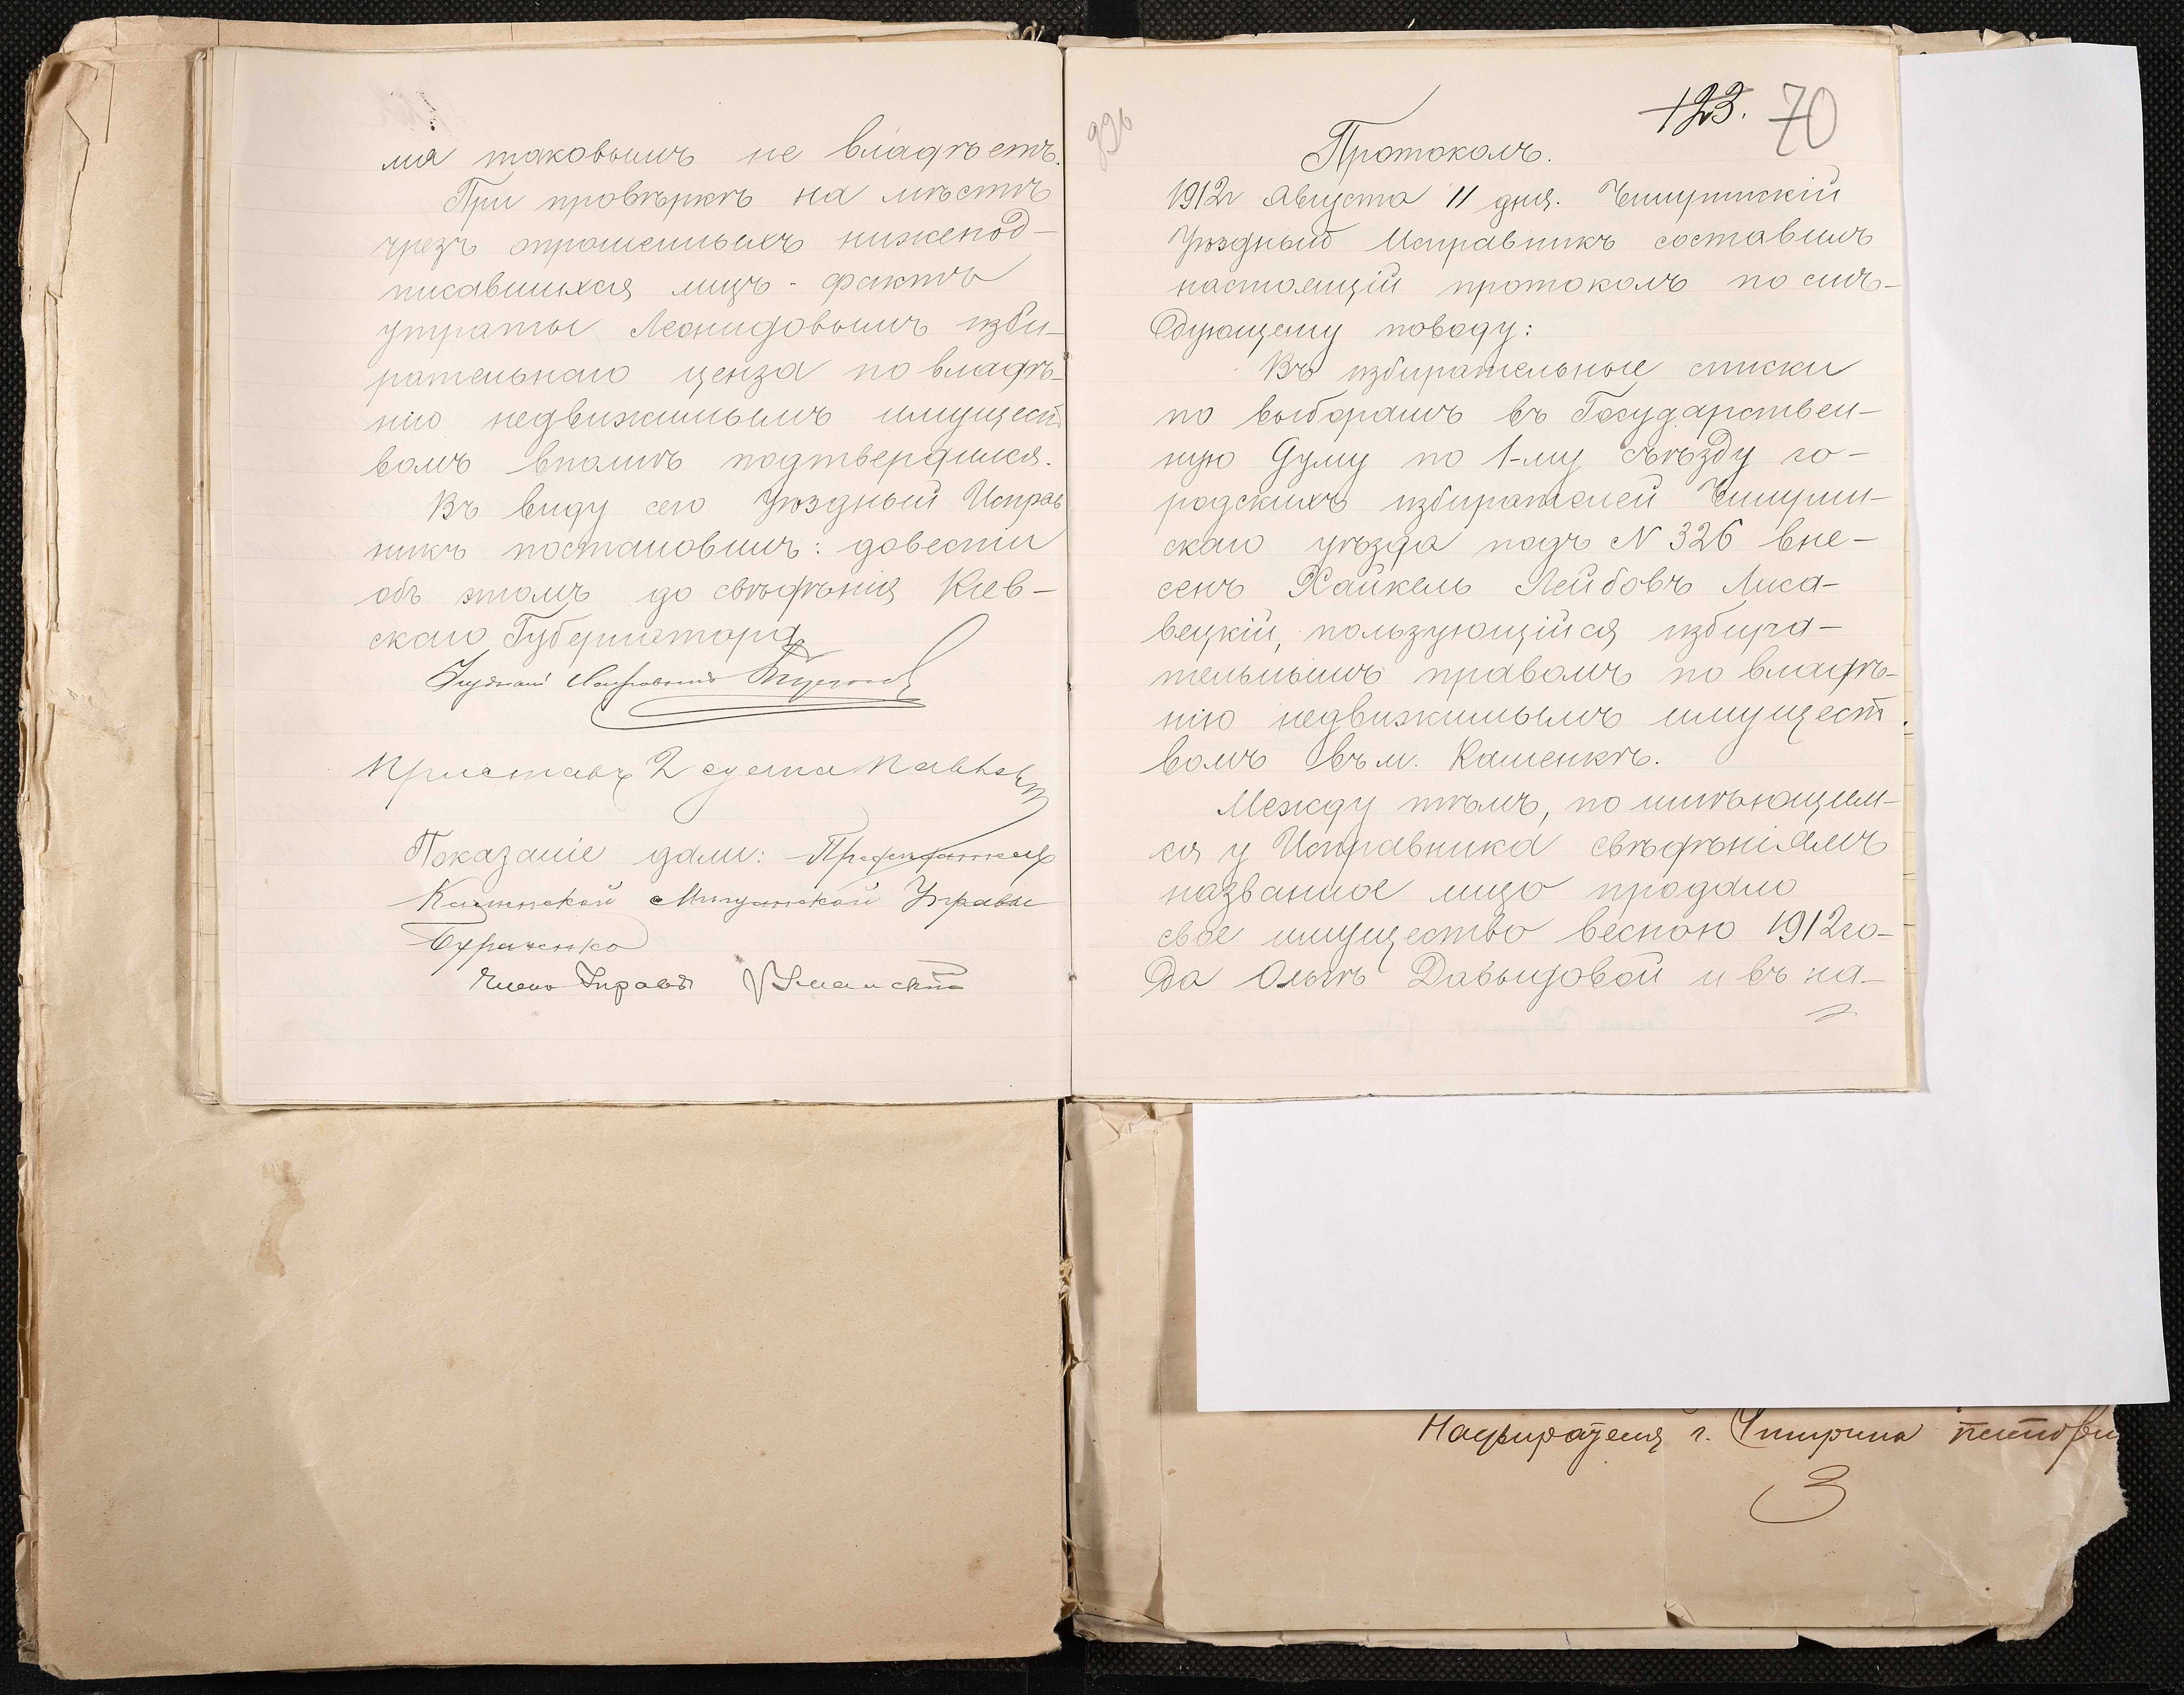 мя таковымъ не владѣетъ.
При провѣркѣ на мѣстѣ
чрезъ опрошенныхъ нижепод-
писавшихся лицъ - фактъ
утраты Леонидовымъ изби-
рательнаго ценза по владѣ-
нію недвижимымъ имущест
вомъ вполнѣ подтвердился.
Въ виду сего Уѣздный Исправ
никъ постановилъ: довести
объ этомъ до свѣдѣнія Кіев-
скаго Губернатора
Уѣздный Исправникъ
Приставъ 2 стана
Показаніе дали:
Каменской Мѣщанской Управы
Членъ Управы Уманскій
996
123. 70
Протоколъ.
1912г Августа 11 дня. Чигиринскій
Уѣздный Исправникъ составилъ
настоящій протоколъ по слѣ-
дующему поводу:
Въ избирательные списки
по выборамъ въ Государствен-
ную Думу по 1-му съѣзду го-
родскихъ избирателей Чигирин-
скаго уѣзда подъ N 326 вне-
сенъ Хайкель Лейбовъ Лиса-
вецкій, пользующійся избира-
тельнымъ правомъ по владѣ-
нію недвижимымъ имущест
вомъ въ м. Каменкѣ.
Между тѣмъ, по имѣющим-
ся у Исправника свѣдѣніямъ
названное лицо продало
свое имущество весною 1912 го-
да Ольгѣ Давыдовой и въ на-
Надзирателя г. Чигирина
3